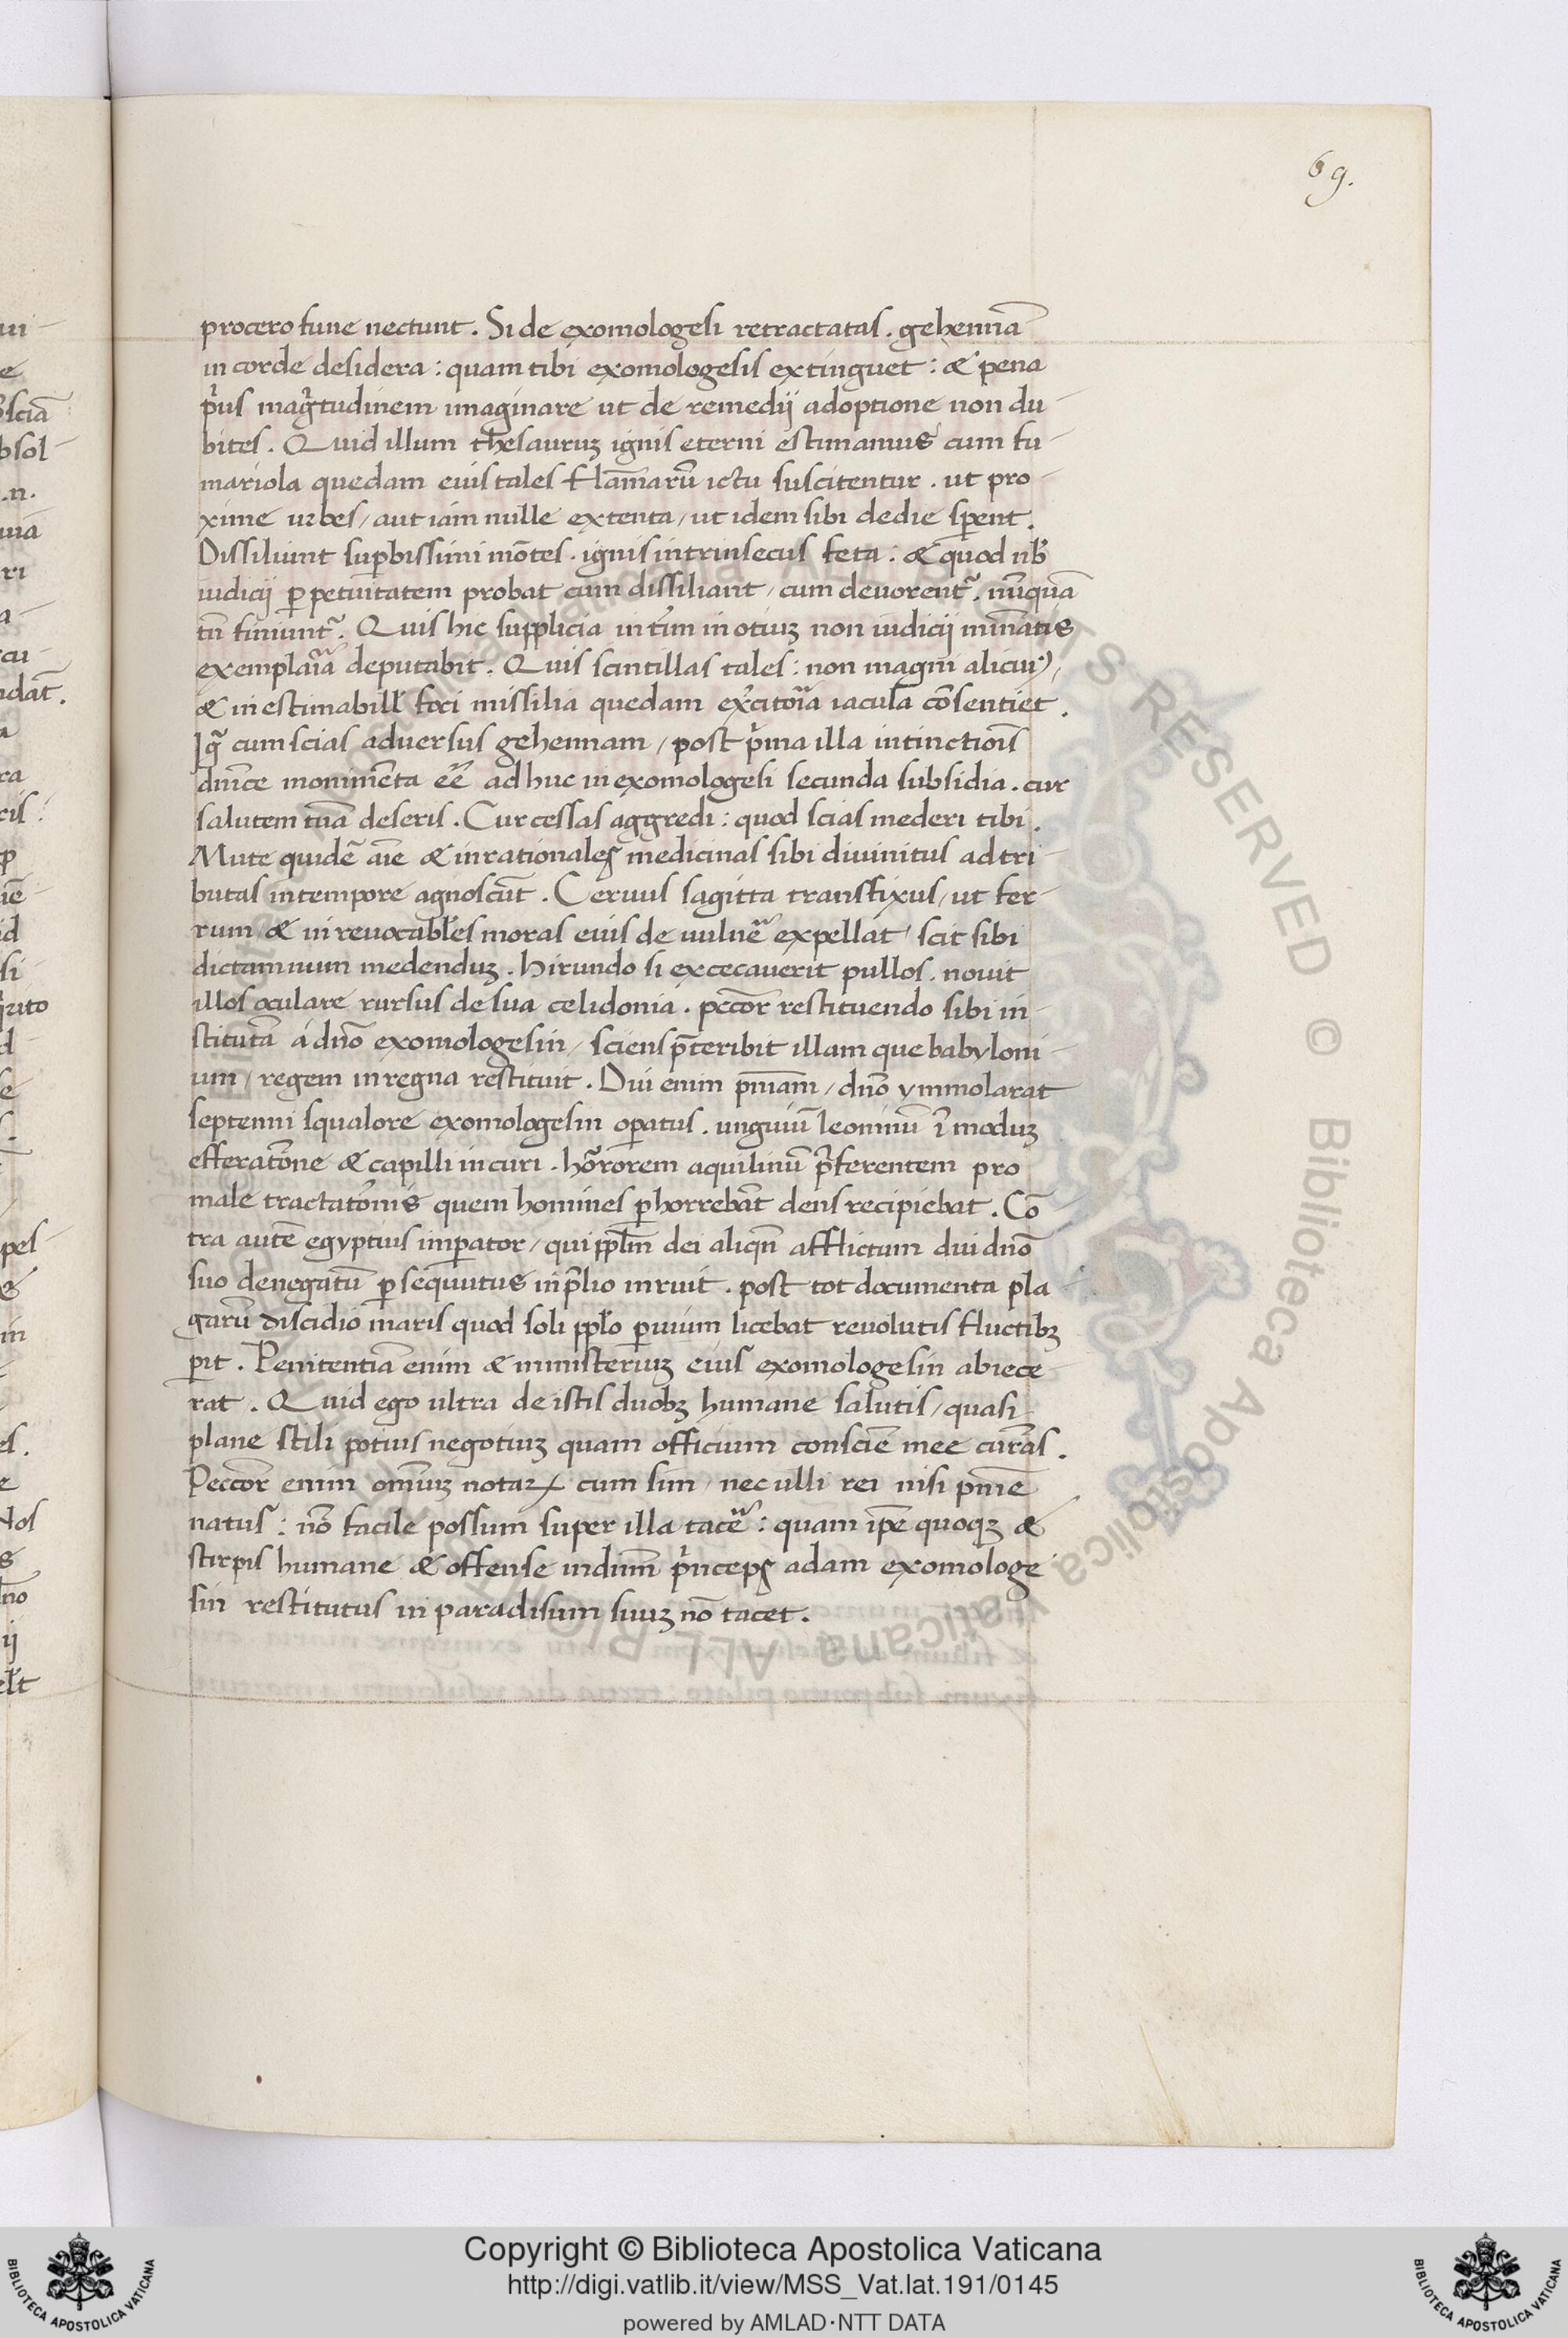 69.
procero fune nectunt. Si de exomologesi retractatas. gehennā
in corde desidera: quam tibi exomologesis extinguet: & pena
prius magnitudinem imaginare ut de remedij adoptione non du-
bites. Quid illum thesauruꝫ ignis eterni estimamus cum fu-
mariola quedam eius tales flāmarū ictu suscitentur. ut pro-
xime urbes/ aut iam nulle extenta/ ut idem sibi de die sperent.
Dissiliunt superbissimi mōtes. ignis intrinsecus feta: & quod nb̄
iudicij ꝑpetuitatem probat cum dissiliant/ cum devorent̄. nūquā
tn̄ finiunt̄. Quis hic supplicia interim in otiuꝫ non iudicij minātis
exemplaria deputabit. Quis scintillas tales: non magni alicuiꝰ,
& inestimabilƚ foci missilia quedam exercitoria iacula cōsentiet.
Igr̄ cum scias adversus gehennam/ post prima illa intinctiōis
dn̄ice monimēta eē adhuc in exomologesi secunda subsidia. cur
salutem tuā deseris. Cur cessas aggredi: quod scias mederi tibi.
Mute quidē aīe & inrationales medicinas sibi divinitus adtri-
butas in tempore agnoscūt. Cervus sagitta transfixus/ ut fer-
rum/ & inrevocabƚes moras eius de vulnere expellat/ scit sibi
dictamnum medenduꝫ. Hirundo si excecaverit pullos. novit
illos oculare rursus de sua celidonia. peccōr restituendo sibi in-
stitutā á dn̄o exomologesin/ sciens p̄teribit illam que babyloni-
um/ regem in regna restituit. Diu enim pn̄iam/ dn̄o ymmolarat
septenni squalore exomologesin oꝑatus. unguiū leoninū ī moduꝫ
efferatione & capilli incuri. horrorem aquilinū p̄ferentem pro
male tractatōnis quem homines ꝑhorrebāt deus recipiebat. Cō
tra autē egyptius imꝑator/ qui ppƚm dei aliqn̄ afflictum diu dn̄o
suo denegatū ꝑsequutus in p̄lio inruit. post tot documenta pla
garū discidio maris quod soli ppƚo ꝑvium licebat revolutis fluctibꝫ
ꝑit. Penitentiā enim & ministeriuꝫ eius exomologesin abiece
rat. Quid ego ultra de istis duobꝫ humane salutis/ quasi
plane stili potius negotiuꝫ quam officium consciē mee curās.
Peccōr enim omniuꝫ notaꝝ cum sim/ nec ulli rei nisi pn̄ie
natus: nō facile possum super illa tacere: quam ip̄e quoqꝫ &
stirpis humane & offense in dn̄m princeps adam exomologe
sin restitutus in paradisum suuꝫ nō tacet.
Copyright © Biblioteca Apostolica Vaticana
http://digi.vatlib.it/view/MSS_Vat.lat.191/0145
powered by AMLAD·NTT DATA